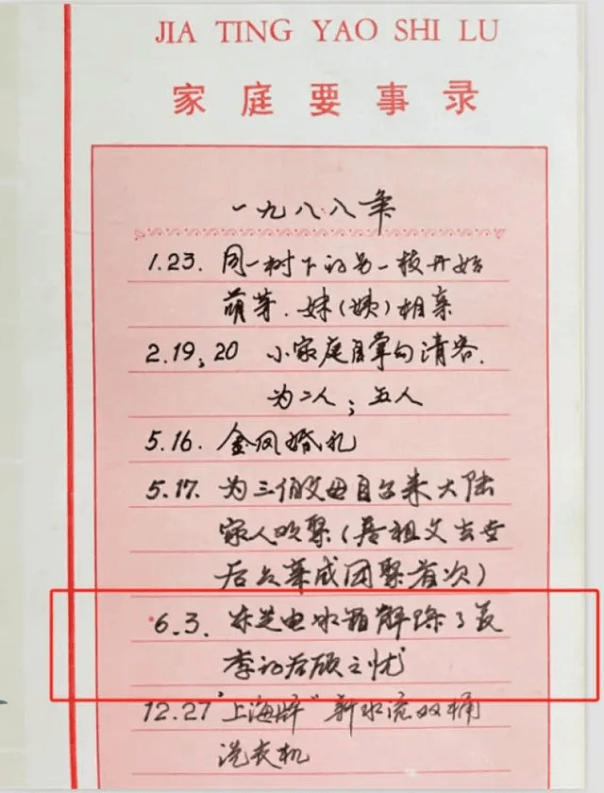 JIA TING YAO SHI LU
家庭要事录
一九八八年
1.23. 同一树下的另一枝开始
萌芽.妹(姨)相亲
2.19;20 小家庭自掌勺请客.
为二人;五人
5.16. 金凤婚礼
5.17. 为三伯父母自台来大陆
家人欢聚(居祖父去世
后台幕成团聚首次)
6.3. 东芝电冰箱解除了夏
季的后顾之忧
12.27 "上海牌"新水流双桶
洗衣机